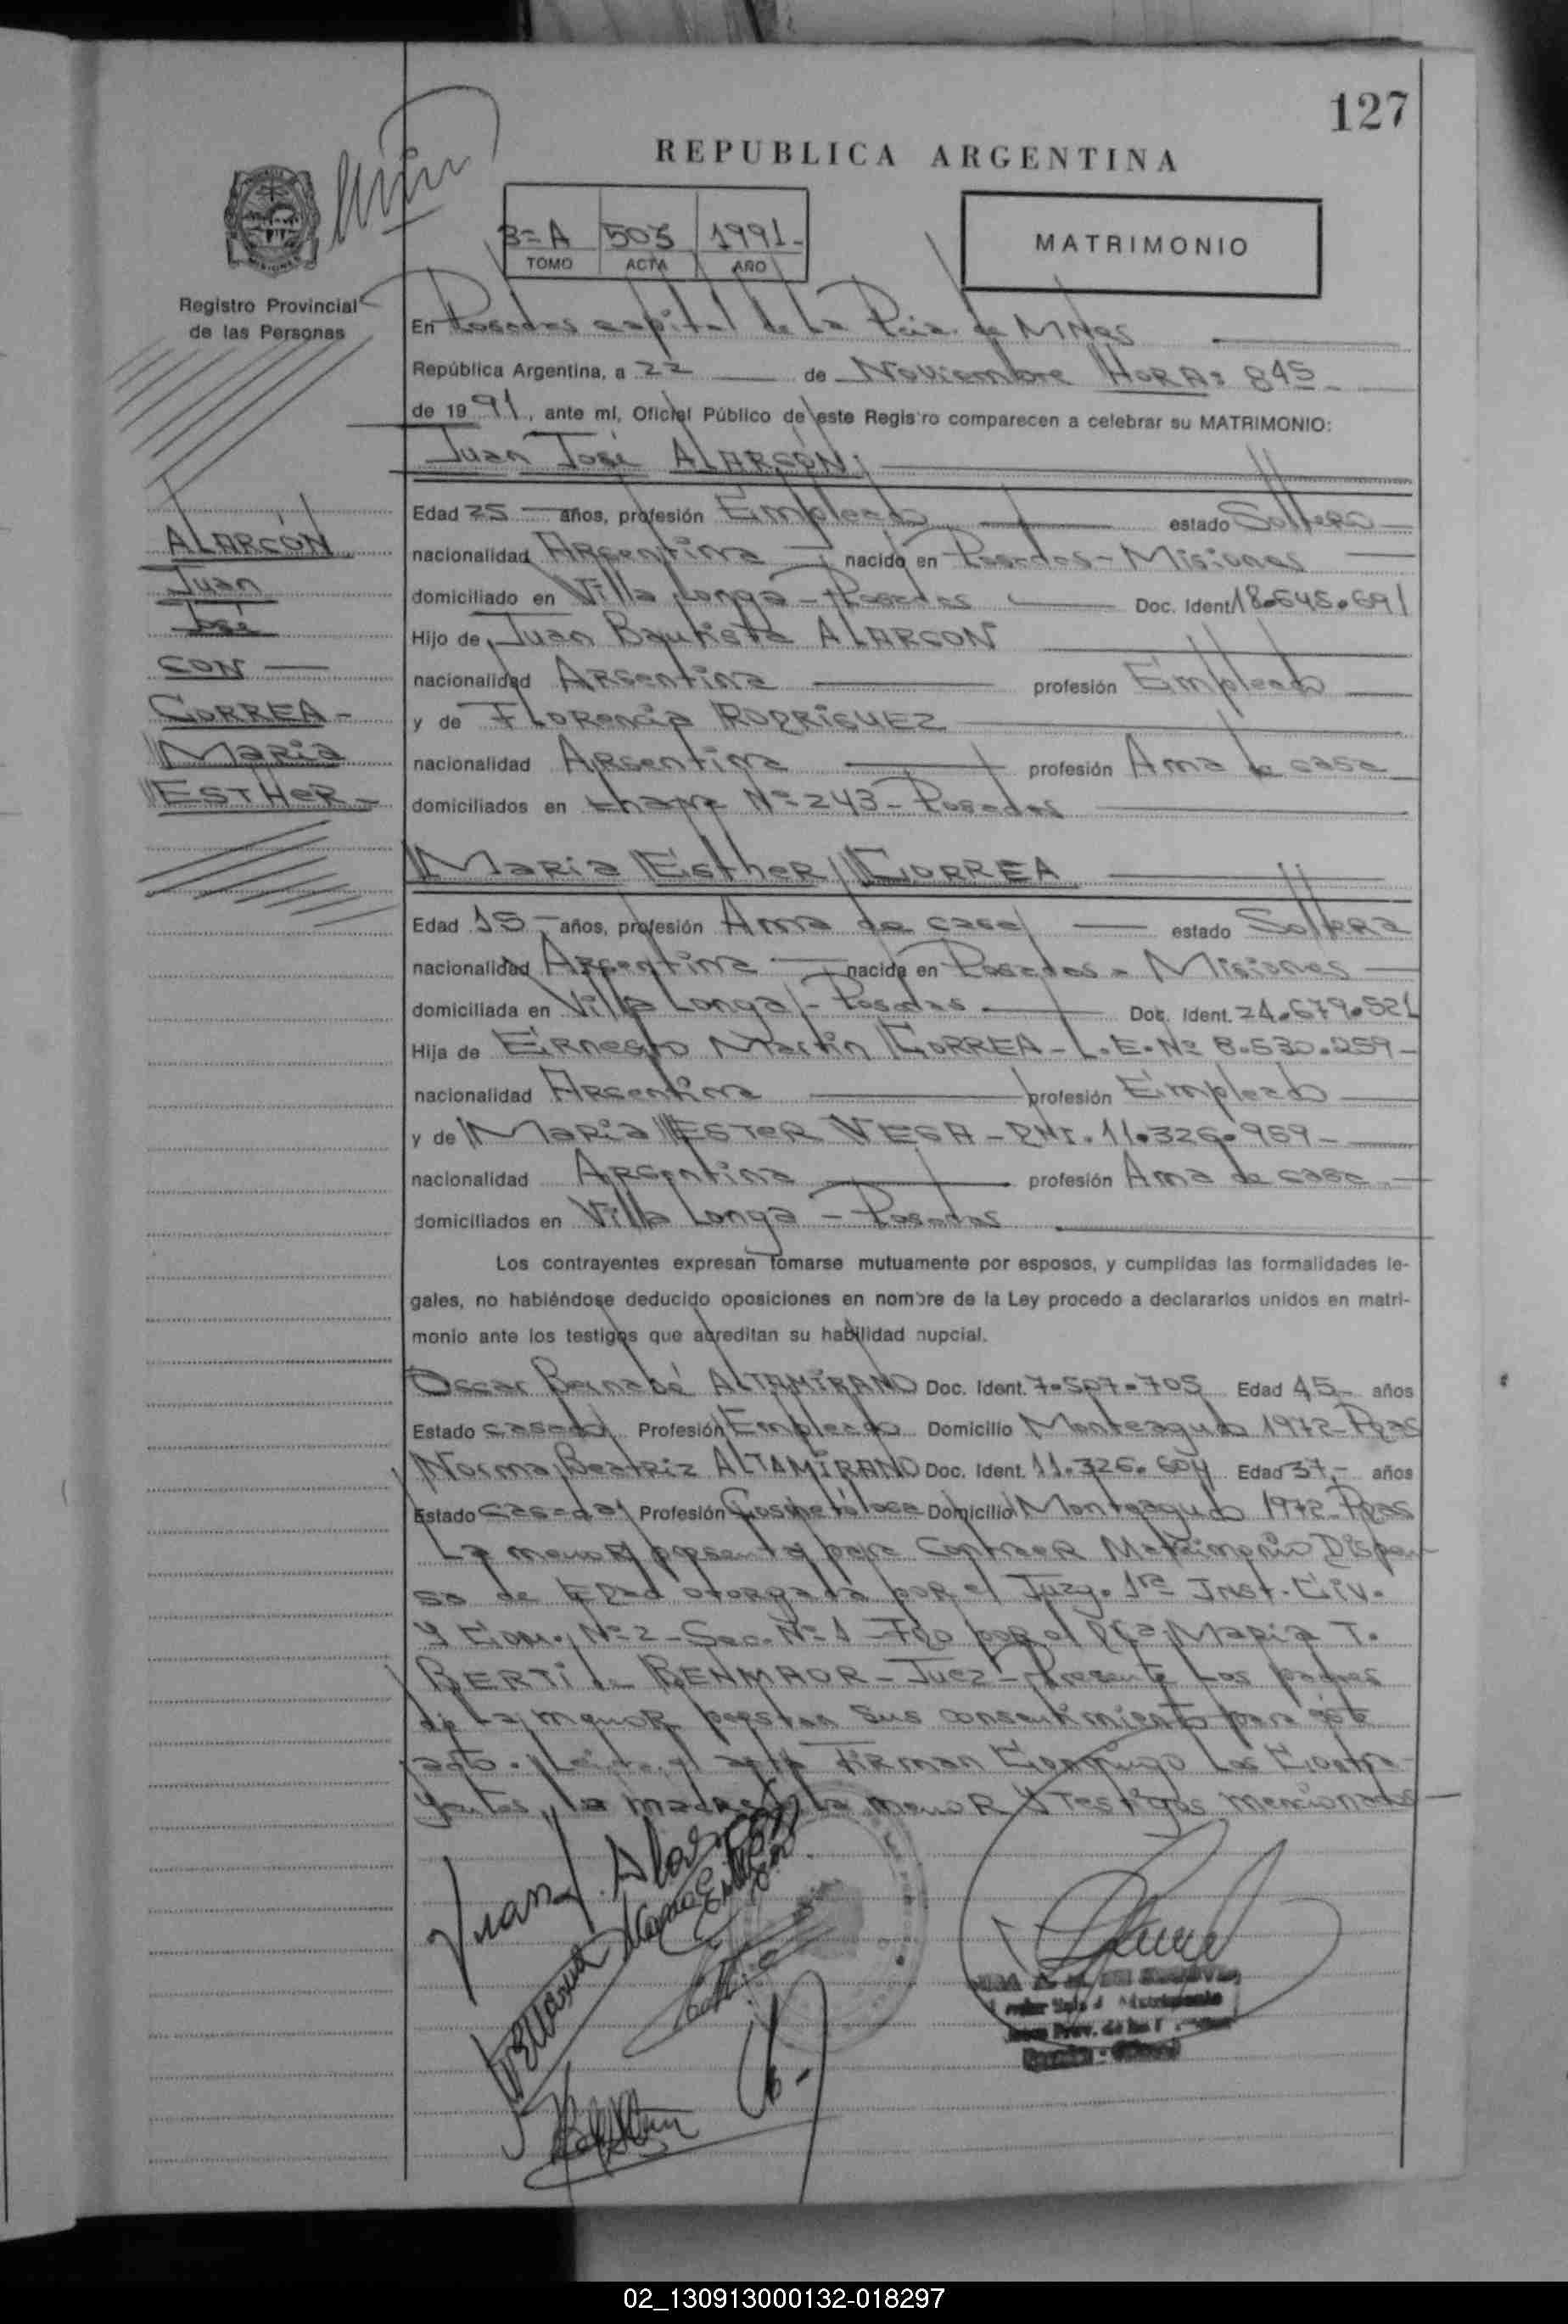 127
REPUBLICA ARGENTINA
3=A 503 1991-
TOMO ACTA AÑO
MATRIMONIO
Registro Provincial
de las Personas
En Posadas capital de La Pcia. de Mnes
República Argentina, a 22 de Noviembre HORA: 845
de 1991, ante mí, Oficial Público de este Registro comparecen a celebrar su MATRIMONIO:
Juan José ALARCÓN
Edad 25 años, profesión Empleado estado Soltero
nacionalidad Argentina nacido en Posadas - Misiones
domiciliado en Villa Longa - Posadas Doc. Ident. 18.645.691
Hijo de Juan Bautista ALARCON
nacionalidad Argentina profesión Empleado
y de Florencia RODRIGUEZ
nacionalidad Argentina profesión Ama de casa
domiciliados en Nº 243 - Posadas
ALARCÓN
Juan
José
CON
CORREA -
Maria
ESTHER -
Maria Esther CORREA
Edad 15 - años, profesión Ama de casa estado Soltera
nacionalidad Argentina nacida en Posadas - Misiones
domiciliada en Villa Longa - Posadas Doc. Ident. 24.679.521
Hija de Ernesto Martin CORREA - L.E. Nº 8.530.259 -
nacionalidad Argentina profesión Empleado
y de Maria ESTER VEGA - DNI. 11.326.959 -
nacionalidad Argentina profesión Ama de casa
domiciliados en Villa Longa - Posadas
Los contrayentes expresan tomarse mutuamente por esposos, y cumplidas las formalidades le-
gales, no habiéndose deducido oposiciones en nombre de la Ley procedo a declararlos unidos en matri-
monio ante los testigos que acreditan su habilidad nupcial.
Oscar Bernabé ALTAMIRANO Doc. Ident. 7.507.705 Edad 45 - años
Estado casado Profesión Empleado Domicilio Monteagudo 1972 - Pdas
Norma Beatriz ALTAMIRANO Doc. Ident. 11.326.604 Edad 37 - años
Estado Casada Profesión Cosmetóloga Domicilio Monteagudo 1972 - Pdas
La menor presenta para Contraer Matrimonio Dispen
sa de Edad otorgada por el Juzg. 1ra Inst. Civ.
y Com. Nº 2 - Sec. Nº 1 - Fdo por Maria T.
BERTI de BENMAOR - Juez - Presente Los padres
de La menor prestan sus consentimiento para éste
acto. Leída el acta Firman Conmigo Los Contra-
yentes, la madre de la menor y Testigos mencionados
Juan J. Alarcón
Maria Esther
02_130913000132-018297